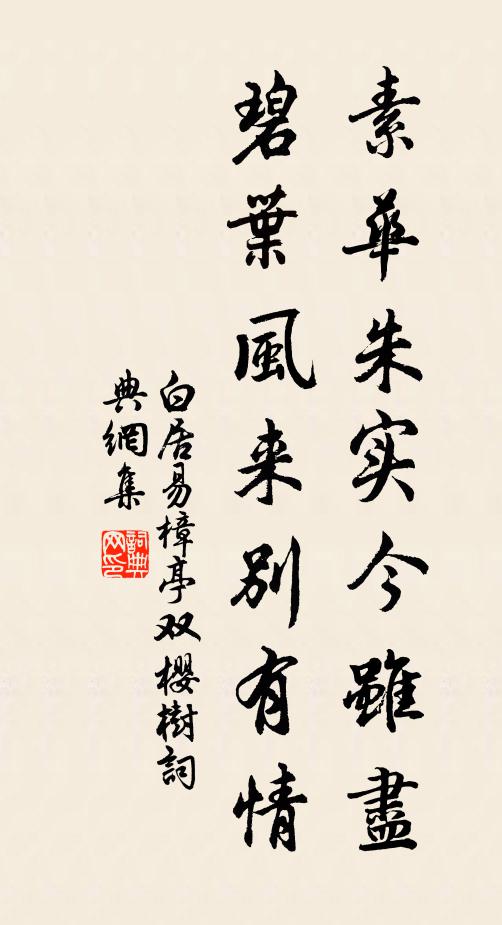 素華朱实今雖盡
碧葉風来别有情
白居易樟亭双櫻樹詞
典網集
詞典
网印